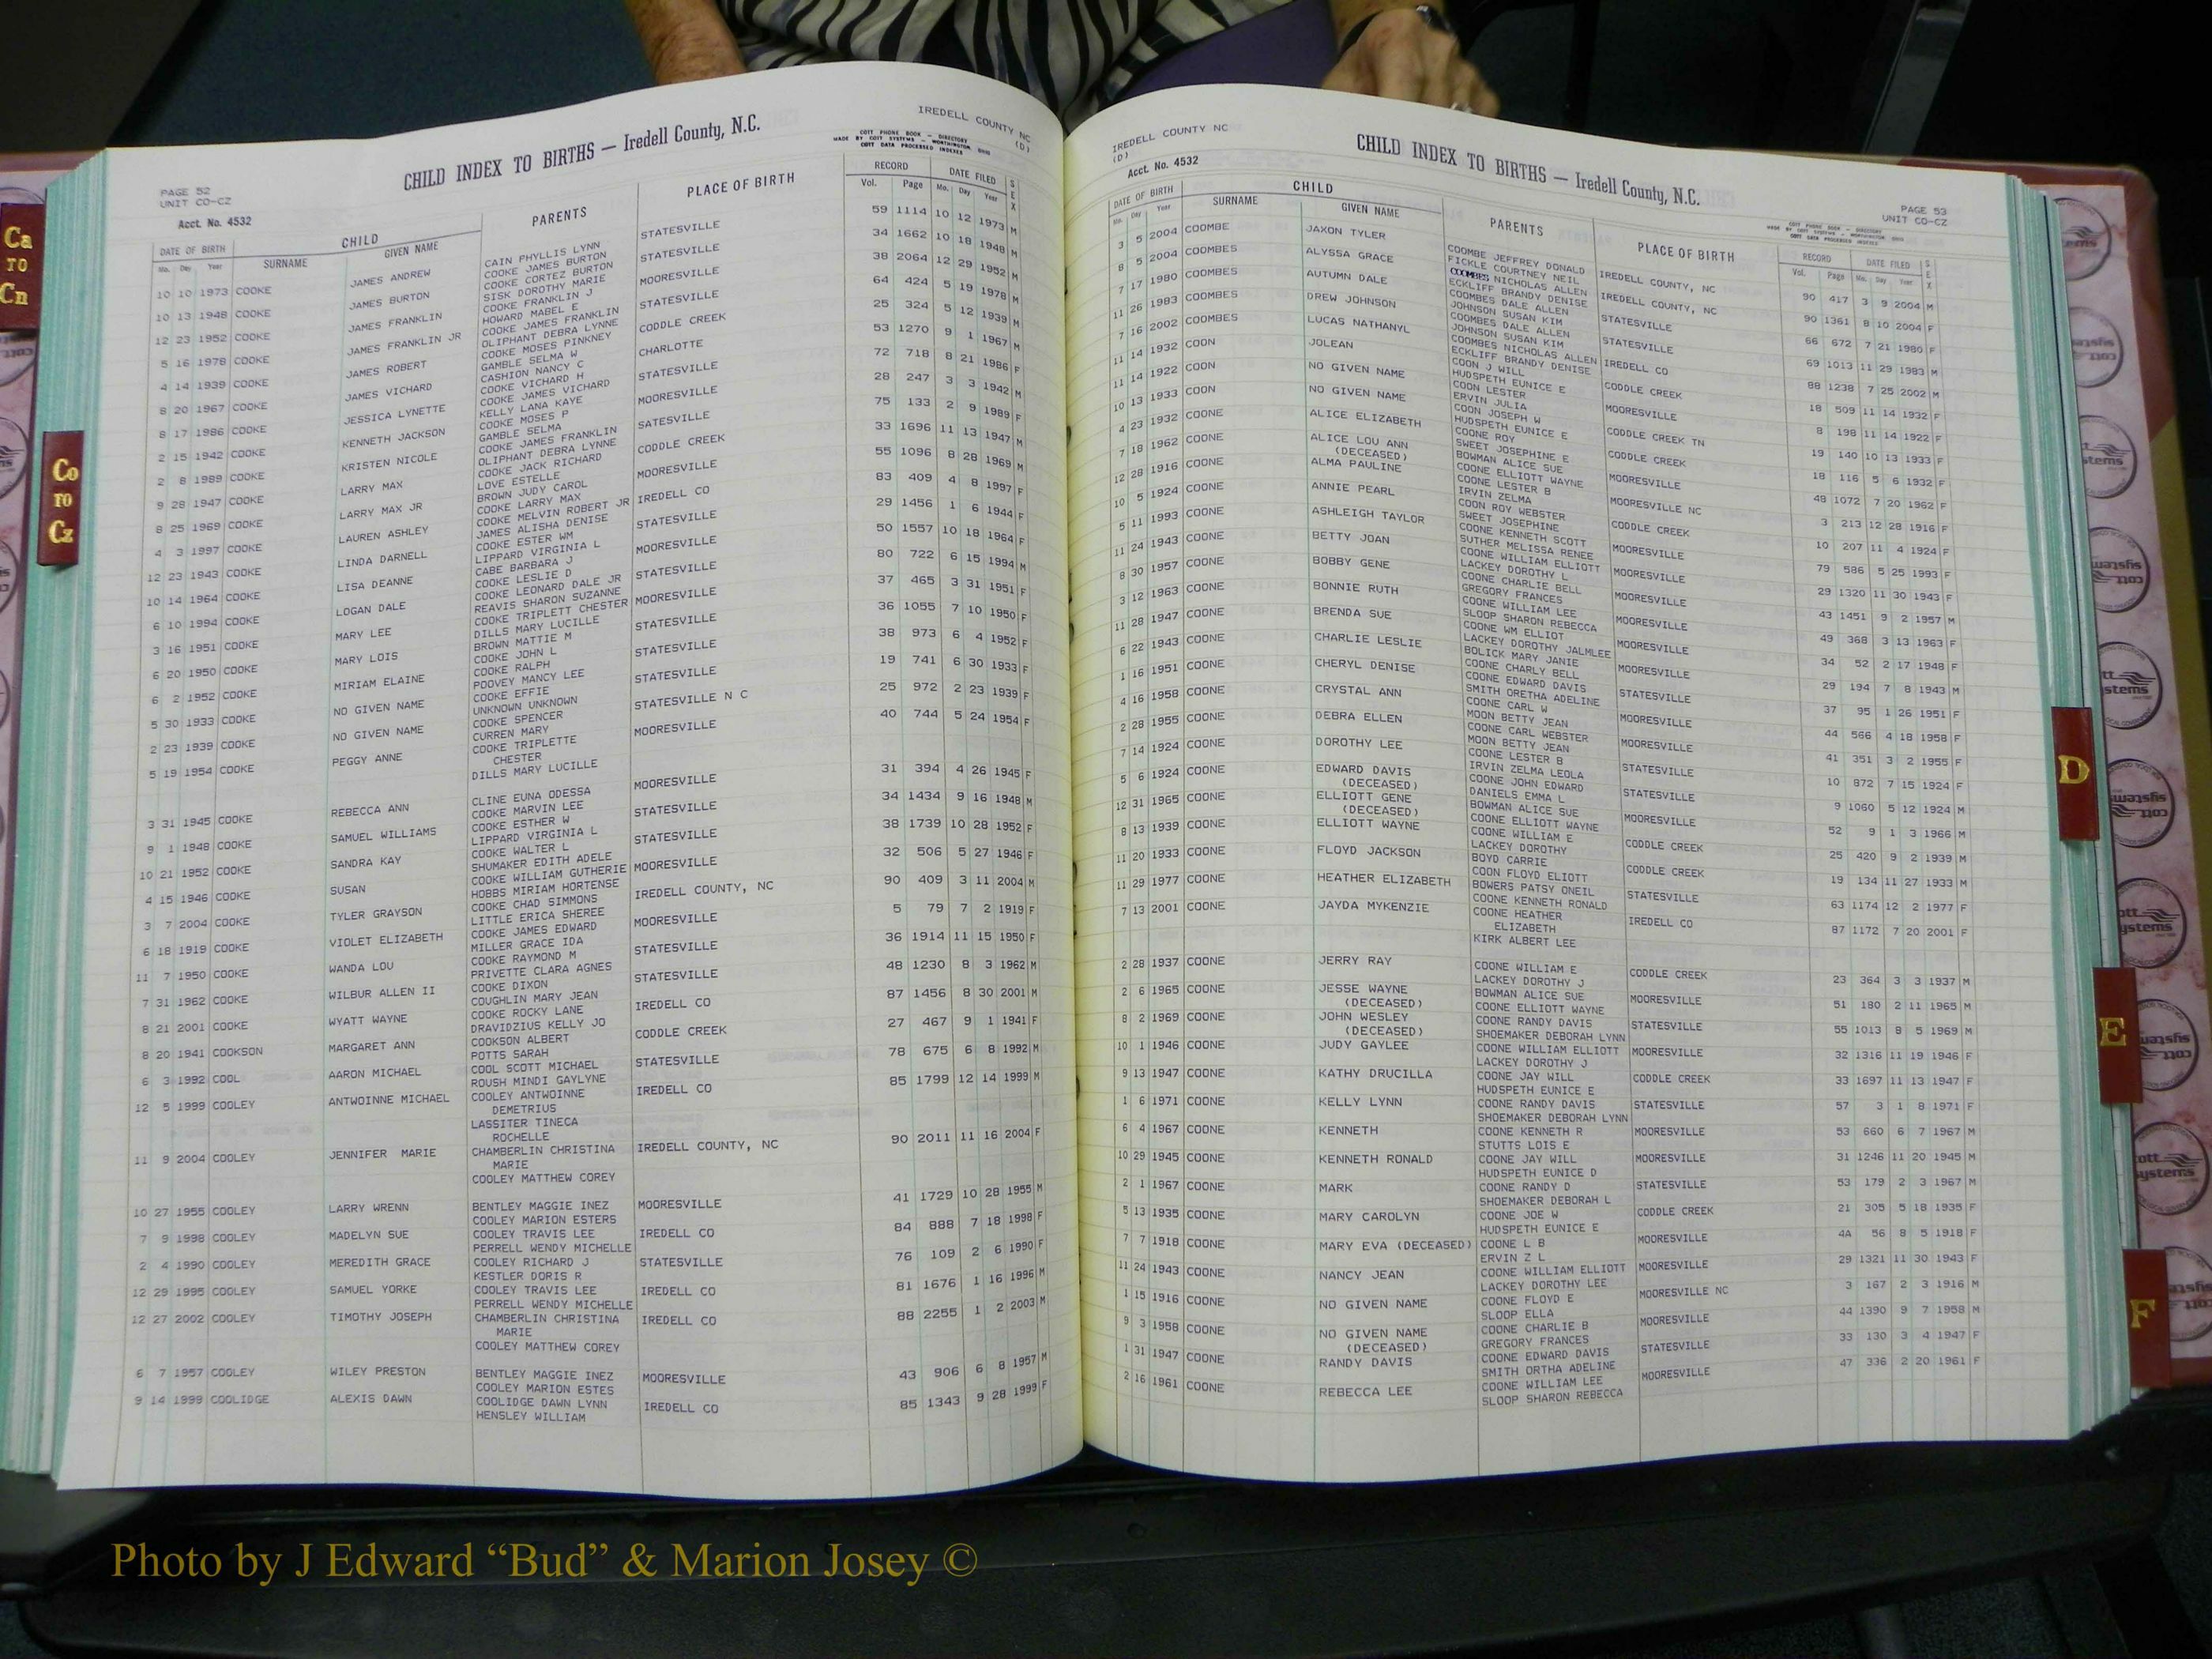 IREDELL COUNTY NC
(D)
CHILD INDEX TO BIRTHS — Iredell County, N.C.
COTT PHONE BOOK — DIRECTORY
MADE BY COTT SYSTEMS — WORTHINGTON, OHIO
COTT DATA PROCESSED INDEXES
PAGE 52
UNIT CO-CZ
Acct. No. 4532
DATE OF BIRTH CHILD PARENTS PLACE OF BIRTH RECORD DATE FILED SEX
Mo. Day Year SURNAME GIVEN NAME Vol. Page Mo. Day Year
10 10 1973 COOKE JAMES ANDREW CAIN PHYLLIS LYNN STATESVILLE 59 1114 10 12 1973 M
COOKE JAMES BURTON
10 13 1948 COOKE JAMES BURTON COOKE CORTEZ BURTON STATESVILLE 34 1662 10 18 1948 M
SISK DOROTHY MARIE
12 23 1952 COOKE JAMES FRANKLIN COOKE FRANKLIN J MOORESVILLE 38 2064 12 29 1952 M
HOWARD MABEL E
5 16 1978 COOKE JAMES FRANKLIN JR COOKE JAMES FRANKLIN STATESVILLE 64 424 5 19 1978 M
OLIPHANT DEBRA LYNNE
4 14 1939 COOKE JAMES ROBERT COOKE MOSES PINKNEY CODDLE CREEK 25 324 5 12 1939 M
GAMBLE SELMA W
8 20 1967 COOKE JAMES VICHARD CASHION NANCY C CHARLOTTE 53 1270 9 1 1967 M
COOKE VICHARD H
8 17 1986 COOKE JESSICA LYNETTE COOKE JAMES VICHARD STATESVILLE 72 718 8 21 1986 F
KELLY LANA KAYE
2 15 1942 COOKE KENNETH JACKSON COOKE MOSES P MOORESVILLE 28 247 3 3 1942 M
GAMBLE SELMA
2 8 1989 COOKE KRISTEN NICOLE COOKE JAMES FRANKLIN SATESVILLE 75 133 2 9 1989 F
OLIPHANT DEBRA LYNNE
9 28 1947 COOKE LARRY MAX COOKE JACK RICHARD CODDLE CREEK 33 1696 11 13 1947 M
LOVE ESTELLE
8 25 1969 COOKE LARRY MAX JR BROWN JUDY CAROL MOORESVILLE 55 1096 8 28 1969 M
COOKE LARRY MAX
4 3 1997 COOKE LAUREN ASHLEY COOKE MELVIN ROBERT JR IREDELL CO 83 409 4 8 1997 F
JAMES ALISHA DENISE
12 23 1943 COOKE LINDA DARNELL COOKE ESTER WM STATESVILLE 29 1456 1 6 1944 F
LIPPARD VIRGINIA L
10 14 1964 COOKE LISA DEANNE CABE BARBARA J MOORESVILLE 50 1557 10 18 1964 F
COOKE LESLIE D
6 10 1994 COOKE LOGAN DALE COOKE LEONARD DALE JR STATESVILLE 80 722 6 15 1994 M
REAVIS SHARON SUZANNE
3 16 1951 COOKE MARY LEE COOKE TRIPLETT CHESTER MOORESVILLE 37 465 3 31 1951 F
DILLS MARY LUCILLE
6 20 1950 COOKE MARY LOIS BROWN MATTIE M STATESVILLE 36 1055 7 10 1950 F
COOKE JOHN L
6 2 1952 COOKE MIRIAM ELAINE COOKE RALPH STATESVILLE 38 973 6 4 1952 F
POOVEY MANCY LEE
5 30 1933 COOKE NO GIVEN NAME COOKE EFFIE STATESVILLE 19 741 6 30 1933 F
UNKNOWN UNKNOWN
2 23 1939 COOKE NO GIVEN NAME COOKE SPENCER STATESVILLE N C 25 972 2 23 1939 F
CURREN MARY
5 19 1954 COOKE PEGGY ANNE COOKE TRIPLETTE MOORESVILLE 40 744 5 24 1954 F
CHESTER
DILLS MARY LUCILLE
3 31 1945 COOKE REBECCA ANN CLINE EUNA ODESSA MOORESVILLE 31 394 4 26 1945 F
COOKE MARVIN LEE
9 1 1948 COOKE SAMUEL WILLIAMS COOKE ESTHER W STATESVILLE 34 1434 9 16 1948 M
LIPPARD VIRGINIA L
10 21 1952 COOKE SANDRA KAY COOKE WALTER L STATESVILLE 38 1739 10 28 1952 F
SHUMAKER EDITH ADELE
4 15 1946 COOKE SUSAN COOKE WILLIAM GUTHERIE MOORESVILLE 32 506 5 27 1946 F
HOBBS MIRIAM HORTENSE
3 7 2004 COOKE TYLER GRAYSON COOKE CHAD SIMMONS IREDELL COUNTY, NC 90 409 3 11 2004 M
LITTLE ERICA SHEREE
6 18 1919 COOKE VIOLET ELIZABETH COOKE JAMES EDWARD MOORESVILLE 5 79 7 2 1919 F
MILLER GRACE IDA
11 7 1950 COOKE WANDA LOU COOKE RAYMOND M STATESVILLE 36 1914 11 15 1950 F
PRIVETTE CLARA AGNES
7 31 1962 COOKE WILBUR ALLEN II COOKE DIXON STATESVILLE 48 1230 8 3 1962 M
COUGHLIN MARY JEAN
8 21 2001 COOKE WYATT WAYNE COOKE ROCKY LANE IREDELL CO 87 1456 8 30 2001 M
DRAVIDZIUS KELLY JO
8 20 1941 COOKSON MARGARET ANN COOKSON ALBERT CODDLE CREEK 27 467 9 1 1941 F
POTTS SARAH
6 3 1992 COOL AARON MICHAEL COOL SCOTT MICHAEL STATESVILLE 78 675 6 8 1992 M
ROUSH MINDI GAYLYNE
12 5 1999 COOLEY ANTWOINNE MICHAEL COOLEY ANTWOINNE IREDELL CO 85 1799 12 14 1999 M
DEMETRIUS
LASSITER TINECA
ROCHELLE
11 9 2004 COOLEY JENNIFER MARIE CHAMBERLIN CHRISTINA IREDELL COUNTY, NC 90 2011 11 16 2004 F
MARIE
COOLEY MATTHEW COREY
10 27 1955 COOLEY LARRY WRENN BENTLEY MAGGIE INEZ MOORESVILLE 41 1729 10 28 1955 M
COOLEY MARION ESTERS
7 9 1998 COOLEY MADELYN SUE COOLEY TRAVIS LEE IREDELL CO 84 888 7 18 1998 F
PERRELL WENDY MICHELLE
2 4 1990 COOLEY MEREDITH GRACE COOLEY RICHARD J STATESVILLE 76 109 2 6 1990 F
KESTLER DORIS R
12 29 1995 COOLEY SAMUEL YORKE COOLEY TRAVIS LEE IREDELL CO 81 1676 1 16 1996 M
PERRELL WENDY MICHELLE
12 27 2002 COOLEY TIMOTHY JOSEPH CHAMBERLIN CHRISTINA IREDELL CO 88 2255 1 2 2003 M
MARIE
COOLEY MATTHEW COREY
6 7 1957 COOLEY WILEY PRESTON BENTLEY MAGGIE INEZ MOORESVILLE 43 906 6 8 1957 M
COOLEY MARION ESTES
9 14 1999 COOLIDGE ALEXIS DAWN COOLIDGE DAWN LYNN IREDELL CO 85 1343 9 28 1999 F
HENSLEY WILLIAM
IREDELL COUNTY NC
(D)
Acct. No. 4532
CHILD INDEX TO BIRTHS — Iredell County, N.C.
PAGE 53
UNIT CO-CZ
DATE OF BIRTH CHILD PARENTS PLACE OF BIRTH RECORD DATE FILED SEX
Mo. Day Year SURNAME GIVEN NAME Vol. Page Mo. Day Year
3 5 2004 COOMBE JAXON TYLER COOMBE JEFFREY DONALD IREDELL COUNTY, NC 90 417 3 9 2004 M
FICKLE COURTNEY NEIL
8 5 2004 COOMBES ALYSSA GRACE COOMBES NICHOLAS ALLEN IREDELL COUNTY, NC 90 1361 8 10 2004 F
ECKLIFF BRANDY DENISE
7 17 1980 COOMBES AUTUMN DALE COOMBES DALE ALLEN STATESVILLE 66 672 7 21 1980 F
JOHNSON SUSAN KIM
11 26 1983 COOMBES DREW JOHNSON COOMBES DALE ALLEN STATESVILLE 69 1013 11 29 1983 M
JOHNSON SUSAN KIM
7 16 2002 COOMBES LUCAS NATHANYL COOMBES NICHOLAS ALLEN IREDELL CO 88 1238 7 25 2002 M
ECKLIFF BRANDY DENISE
11 14 1932 COON JOLEAN COON J WILL CODDLE CREEK 18 509 11 14 1932 F
HUDSPETH EUNICE E
11 14 1922 COON NO GIVEN NAME COON LESTER MOORESVILLE 8 198 11 14 1922 F
ERVIN JULIA
10 13 1933 COON NO GIVEN NAME COON JOSEPH W CODDLE CREEK TN 19 140 10 13 1933 F
HUDSPETH EUNICE E
4 23 1932 COONE ALICE ELIZABETH COONE ROY CODDLE CREEK 18 116 5 6 1932 F
SWEET JOSEPHINE E
7 18 1962 COONE ALICE LOU ANN BOWMAN ALICE SUE MOORESVILLE 48 1072 7 20 1962 F
(DECEASED) COONE ELLIOTT WAYNE
12 28 1916 COONE ALMA PAULINE COONE LESTER B MOORESVILLE NC 3 213 12 28 1916 F
IRVIN ZELMA
10 5 1924 COONE ANNIE PEARL COON ROY WEBSTER CODDLE CREEK 10 207 11 4 1924 F
SWEET JOSEPHINE
5 11 1993 COONE ASHLEIGH TAYLOR COONE KENNETH SCOTT MOORESVILLE 79 586 5 25 1993 F
SUTHER MELISSA RENEE
11 24 1943 COONE BETTY JOAN COONE WILLIAM ELLIOTT MOORESVILLE 29 1320 11 30 1943 F
LACKEY DOROTHY L
8 30 1957 COONE BOBBY GENE COONE CHARLIE BELL MOORESVILLE 43 1451 9 2 1957 M
GREGORY FRANCES
3 12 1963 COONE BONNIE RUTH COONE WILLIAM LEE MOORESVILLE 49 368 3 13 1963 F
SLOOP SHARON REBECCA
11 28 1947 COONE BRENDA SUE COONE WM ELLIOT MOORESVILLE 34 52 2 17 1948 F
LACKEY DOROTHY JALMLEE
6 22 1943 COONE CHARLIE LESLIE BOLICK MARY JANIE MOORESVILLE 29 194 7 8 1943 M
COONE CHARLY BELL
1 16 1951 COONE CHERYL DENISE COONE EDWARD DAVIS STATESVILLE 37 95 1 26 1951 F
SMITH ORETHA ADELINE
4 16 1958 COONE CRYSTAL ANN COONE CARL W MOORESVILLE 44 566 4 18 1958 F
MOON BETTY JEAN
2 28 1955 COONE DEBRA ELLEN COONE CARL WEBSTER MOORESVILLE 41 351 3 2 1955 F
MOON BETTY JEAN
7 14 1924 COONE DOROTHY LEE COONE LESTER B STATESVILLE 10 872 7 15 1924 F
IRVIN ZELMA LEOLA
5 6 1924 COONE EDWARD DAVIS COONE JOHN EDWARD STATESVILLE 9 1060 5 12 1924 M
(DECEASED) DANIELS EMMA L
12 31 1965 COONE ELLIOTT GENE BOWMAN ALICE SUE MOORESVILLE 52 9 1 3 1966 M
(DECEASED) COONE ELLIOTT WAYNE
8 13 1939 COONE ELLIOTT WAYNE COONE WILLIAM E CODDLE CREEK 25 420 9 2 1939 M
LACKEY DOROTHY
11 20 1933 COONE FLOYD JACKSON BOYD CARRIE CODDLE CREEK 19 134 11 27 1933 M
COON FLOYD ELIOTT
11 29 1977 COONE HEATHER ELIZABETH BOWERS PATSY ONEIL STATESVILLE 63 1174 12 2 1977 F
COONE KENNETH RONALD
7 13 2001 COONE JAYDA MYKENZIE COONE HEATHER IREDELL CO 87 1172 7 20 2001 F
ELIZABETH
KIRK ALBERT LEE
2 28 1937 COONE JERRY RAY COONE WILLIAM E CODDLE CREEK 23 364 3 3 1937 M
LACKEY DOROTHY J
2 6 1965 COONE JESSE WAYNE BOWMAN ALICE SUE MOORESVILLE 51 180 2 11 1965 M
(DECEASED) COONE ELLIOTT WAYNE
8 2 1969 COONE JOHN WESLEY COONE RANDY DAVIS STATESVILLE 55 1013 8 5 1969 M
(DECEASED) SHOEMAKER DEBORAH LYNN
10 1 1946 COONE JUDY GAYLEE COONE WILLIAM ELLIOTT MOORESVILLE 32 1316 11 19 1946 F
LACKEY DOROTHY J
9 13 1947 COONE KATHY DRUCILLA COONE JAY WILL CODDLE CREEK 33 1697 11 13 1947 F
HUDSPETH EUNICE E
1 6 1971 COONE KELLY LYNN COONE RANDY DAVIS STATESVILLE 57 3 1 8 1971 F
SHOEMAKER DEBORAH LYNN
6 4 1967 COONE KENNETH COONE KENNETH R MOORESVILLE 53 660 6 7 1967 M
STUTTS LOIS E
10 29 1945 COONE KENNETH RONALD COONE JAY WILL MOORESVILLE 31 1246 11 20 1945 M
HUDSPETH EUNICE D
2 1 1967 COONE MARK COONE RANDY D STATESVILLE 53 179 2 3 1967 M
SHOEMAKER DEBORAH L
5 13 1935 COONE MARY CAROLYN COONE JOE W CODDLE CREEK 21 305 5 18 1935 F
HUDSPETH EUNICE E
7 7 1918 COONE MARY EVA (DECEASED) COONE L B MOORESVILLE 4A 56 8 5 1918 F
ERVIN Z L
11 24 1943 COONE NANCY JEAN COONE WILLIAM ELLIOTT MOORESVILLE 29 1321 11 30 1943 F
LACKEY DOROTHY LEE
1 15 1916 COONE NO GIVEN NAME COONE FLOYD E MOORESVILLE NC 3 167 2 3 1916 M
SLOOP ELLA
9 3 1958 COONE NO GIVEN NAME COONE CHARLIE B MOORESVILLE 44 1390 9 7 1958 M
(DECEASED) GREGORY FRANCES
1 31 1947 COONE RANDY DAVIS COONE EDWARD DAVIS STATESVILLE 33 130 3 4 1947 F
SMITH ORTHA ADELINE
2 16 1961 COONE REBECCA LEE COONE WILLIAM LEE MOORESVILLE 47 336 2 20 1961 F
SLOOP SHARON REBECCA
Ca
TO
Cn
Co
TO
Cz
D
E
F
Photo by J Edward “Bud” & Marion Josey ©